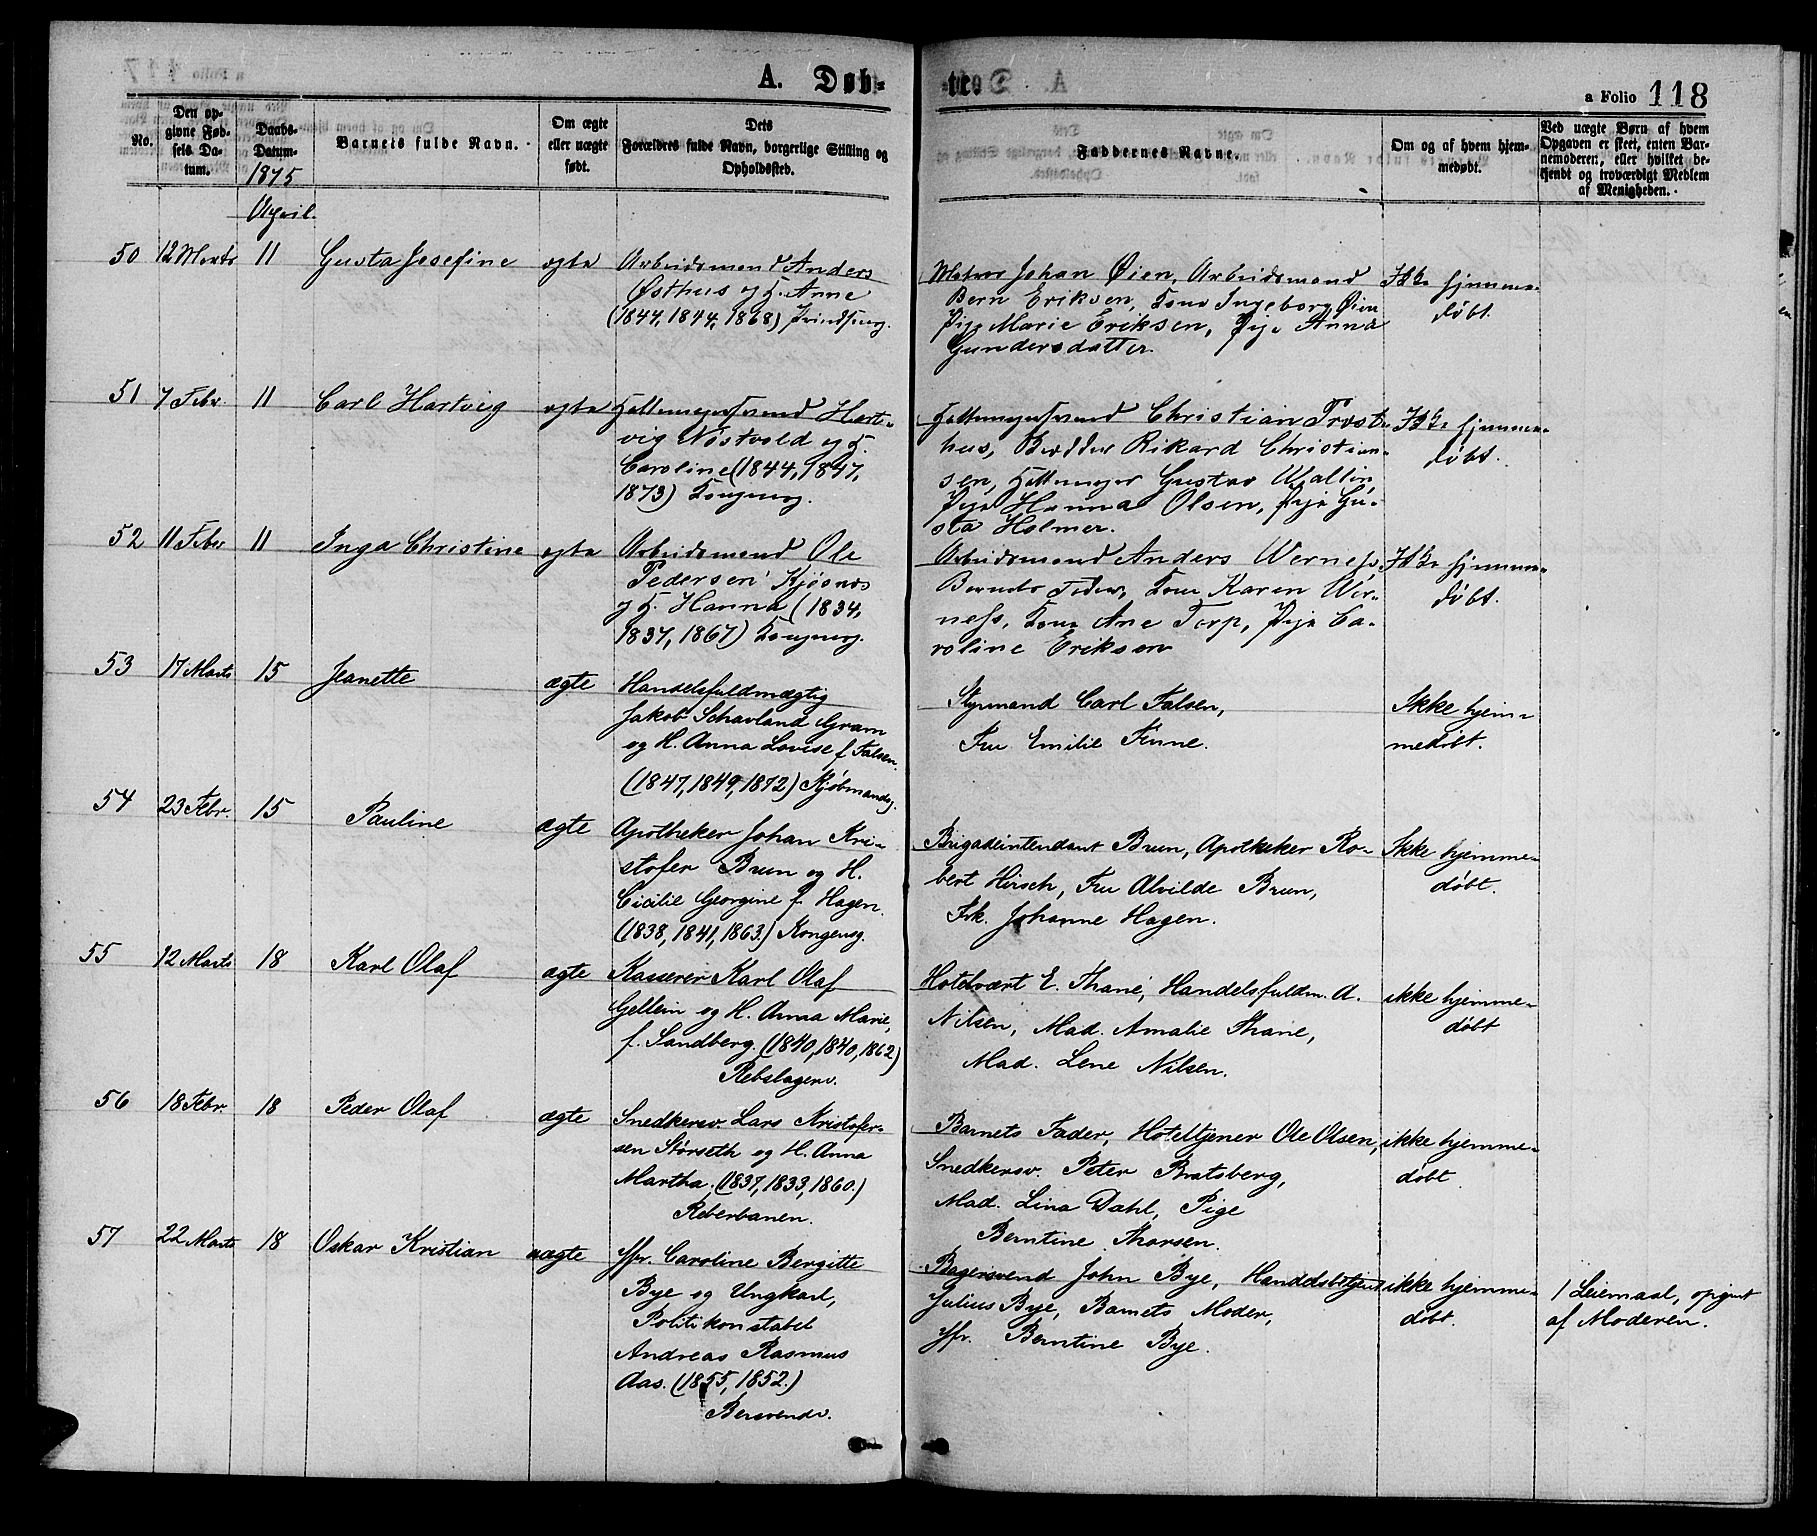 A. Døb-
te.
a Folio 118
No.
Den op-
givne Fød-
sels Da-
tum.
Daabs-
Datum.
1875
Barnets fulde Navn.
Om ægte
eller uægte
født.
Dets
Forældres fulde Navn, borgerlige Stilling og
Opholdssted.
Faddernes Navne.
Om og af hvem hjem-
medøbt.
Ved uægte Børn af hvem
Opgaven er skeet, enten Bar-
nemoderen, eller hvilket be-
kjendt og troværdigt Medlem
af Menigheden.
April.
50 12 Marts 11 Gusta Josefine ægte
Arbeidsmand Anders
Østhus og H. Anne
(1847, 1844, 1868) Prindseng.
Matros Johan Øien, Arbeidsmand
Bern Eriksen, Kone Ingeborg Øien
Pige Marie Eriksen, Pige Anna
Gundersdatter.
Ikke hjemme-
døbt.
51 7 Febr. 11 Carl Hartvig ægte
Hattemagersvend Hart-
vig Nöstvold og H.
Caroline (1844, 1847,
1873) Kongeng.
Hattemagersvend Christian Trost-
hus, Rikard Christian-
sen, Hattemager Gustav Wallin,
Pige Hanna Olsen, Pige Gu-
sta Holmer.
Ikke hjemme-
døbt.
52 11 Febr 11 Inga Christine ægte
Arbeidsmand Ole
Pedersen Kjøsnes
og H. Hanna (1834,
1837, 1867) Kongeng.
Arbeidsmand Anders Werness,
Barnets Fader, Kone Karen Wer-
ness, Kone Ane Torp, Pige Ca-
roline Eriksen
Ikke hjemme-
døbt.
53 17 Marts 15 Jeanette ægte
Handelsfuldmægtig
Jakob Schavland Gram
og H. Anna Lovise f. Falsen.
(1847, 1849, 1872) Kjøbmandsg.
Styrmand Carl Falsen,
Fru Emilie Finne.
Ikke hjem-
medøbt.
54 23 Febr. 15 Pauline ægte
Apotheker Johan Kri-
stofer Brun og H.
Cicilie Georgine f. Hagen.
(1838, 1841, 1863.) Kongensg.
Brigadeintendant Brun, Apotheker Ro-
bert Hirsch, Fru Alvilde Brun,
Frk. Johanne Hagen.
Ikke hjemme-
døbt.
55 12 Marts 18 Karl Olaf ægte
Kasserer Karl Olaf
Gellein og H. Anna Marie,
f. Sandberg. (1840, 1840, 1862)
Rebslagerv.
Hotelvært E. Thane, Handelsfuldm. A.
Nilsen, Mad. Amalie Thane,
Mad. Lene Nilsen.
ikke hjemme-
døbt
56 18 Febr. 18 Peder Olaf ægte
Snedkersv. Lars Kristofer-
sen Störseth og H. Anna
Martha. (1837, 1833, 1860.)
Reberbanen.
Barnets Fader, Hoteltjener Ole Olsen,
Snedkersv. Peter Bratsberg,
Mad. Lina Dahl, Pige
Berntine Thorsen.
ikke hjemme-
døbt.
57 22 Marts 18 Oskar Kristian uægte
Jfr. Caroline Bergitte
Bye og Ungkarl,
Politikonstabel
Andreas Rasmus
Aas. (1855, 1852.)
Bersvendv.
Bagersvend John Bye, Handelsbetjent
Julius Bye, Barnets Moder,
Jfr. Berntine Bye.
ikke hjemme-
døbt.
1 Leiemaal, opgivet
af Moderen.